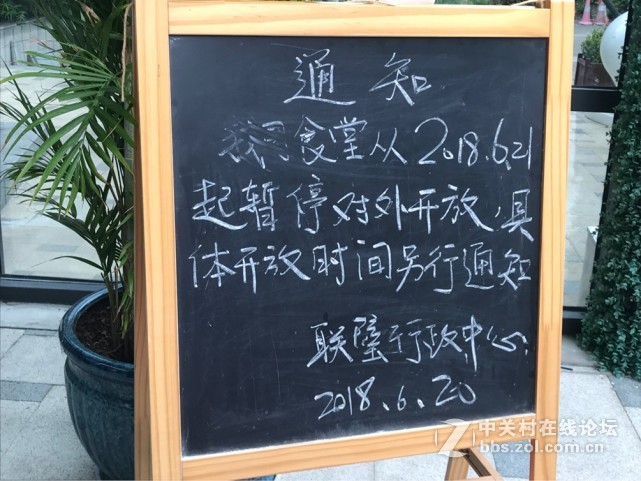 通知
我司食堂从2018.6.21
起暂停对外开放,具
体开放时间另行通知
联隆行政中心
2018.6.20
中关村在线论坛
bbs.zol.com.cn